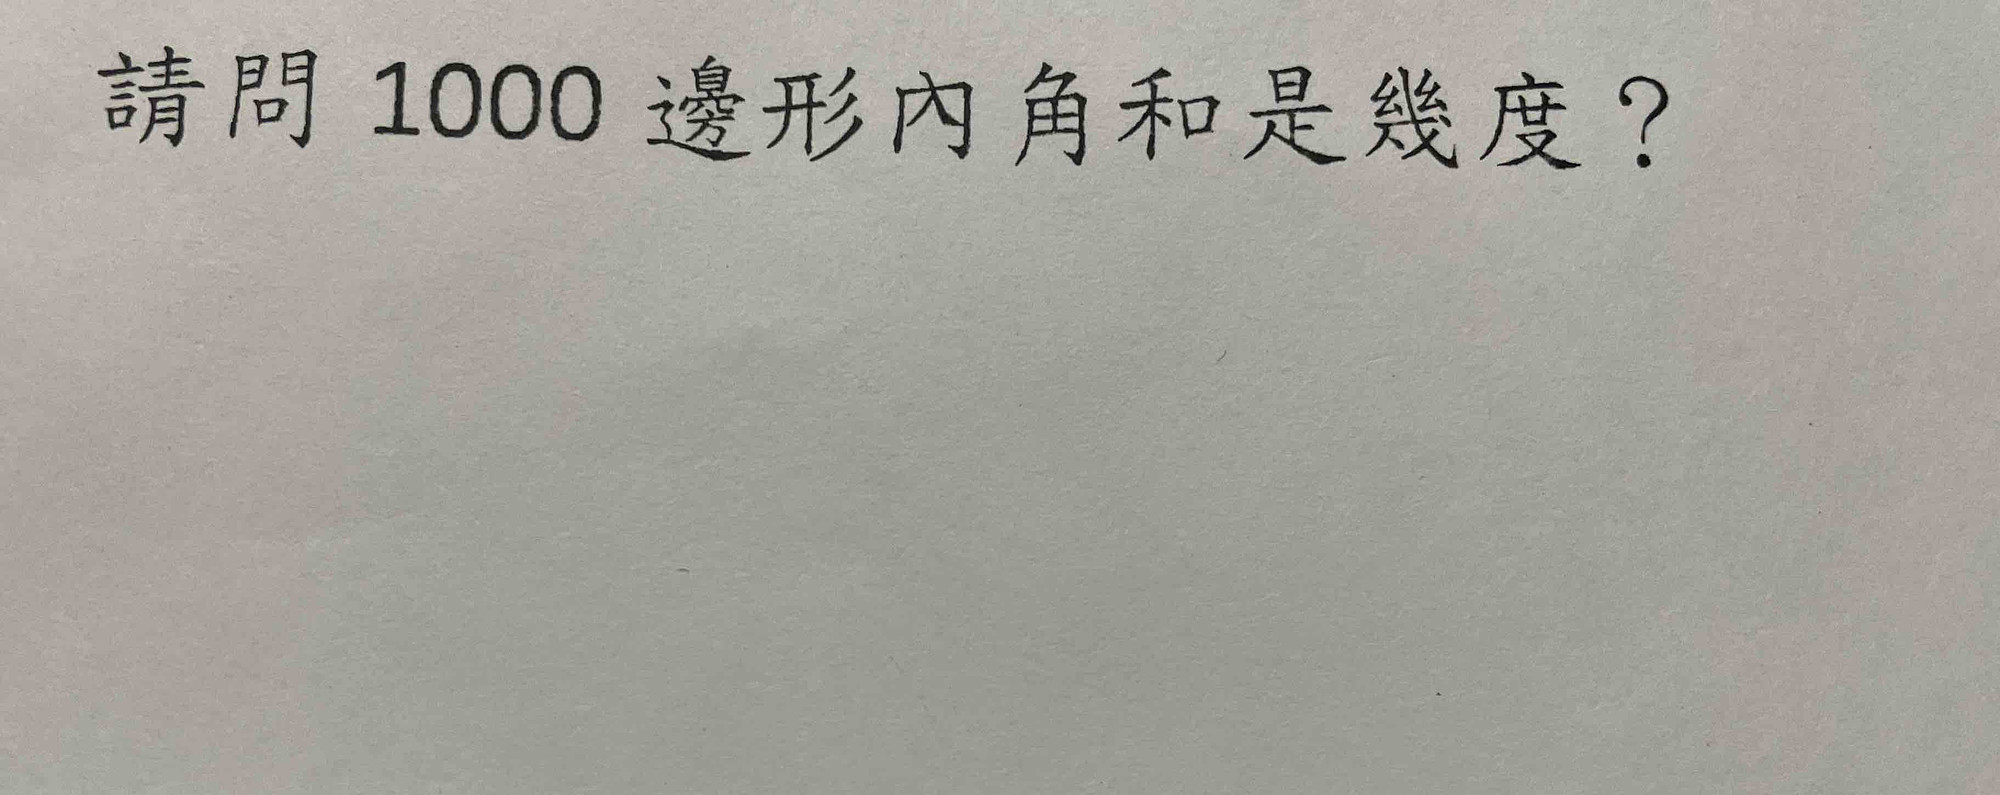 請問 1000 邊形內角和是幾度？